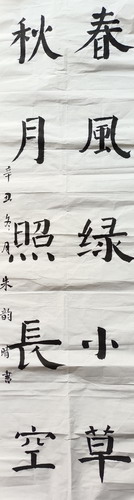 春風绿小草
秋月照長空
辛丑冬月朱韵晴書